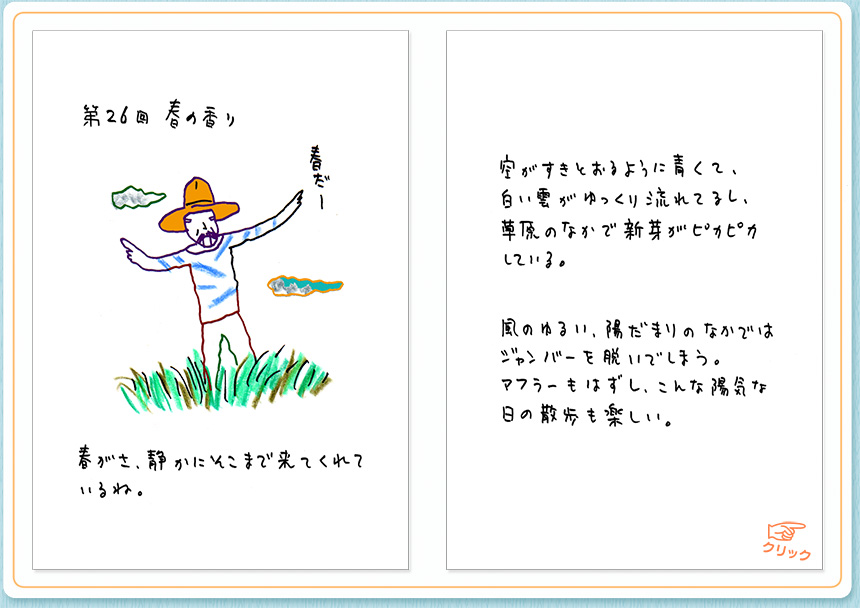 第26回 春の香り
春だー
春がさ、静かにそこまで来てくれて
いるね。
空がすきとおるように青くて、
白い雲がゆっくり流れてるし、
草原のなかで新芽がピカピカ
している。
風のゆるい、陽だまりのなかでは
ジャンバーを脱いでしまう。
マフラーもはずし、こんな陽気な
日の散歩も楽しい。
クリック